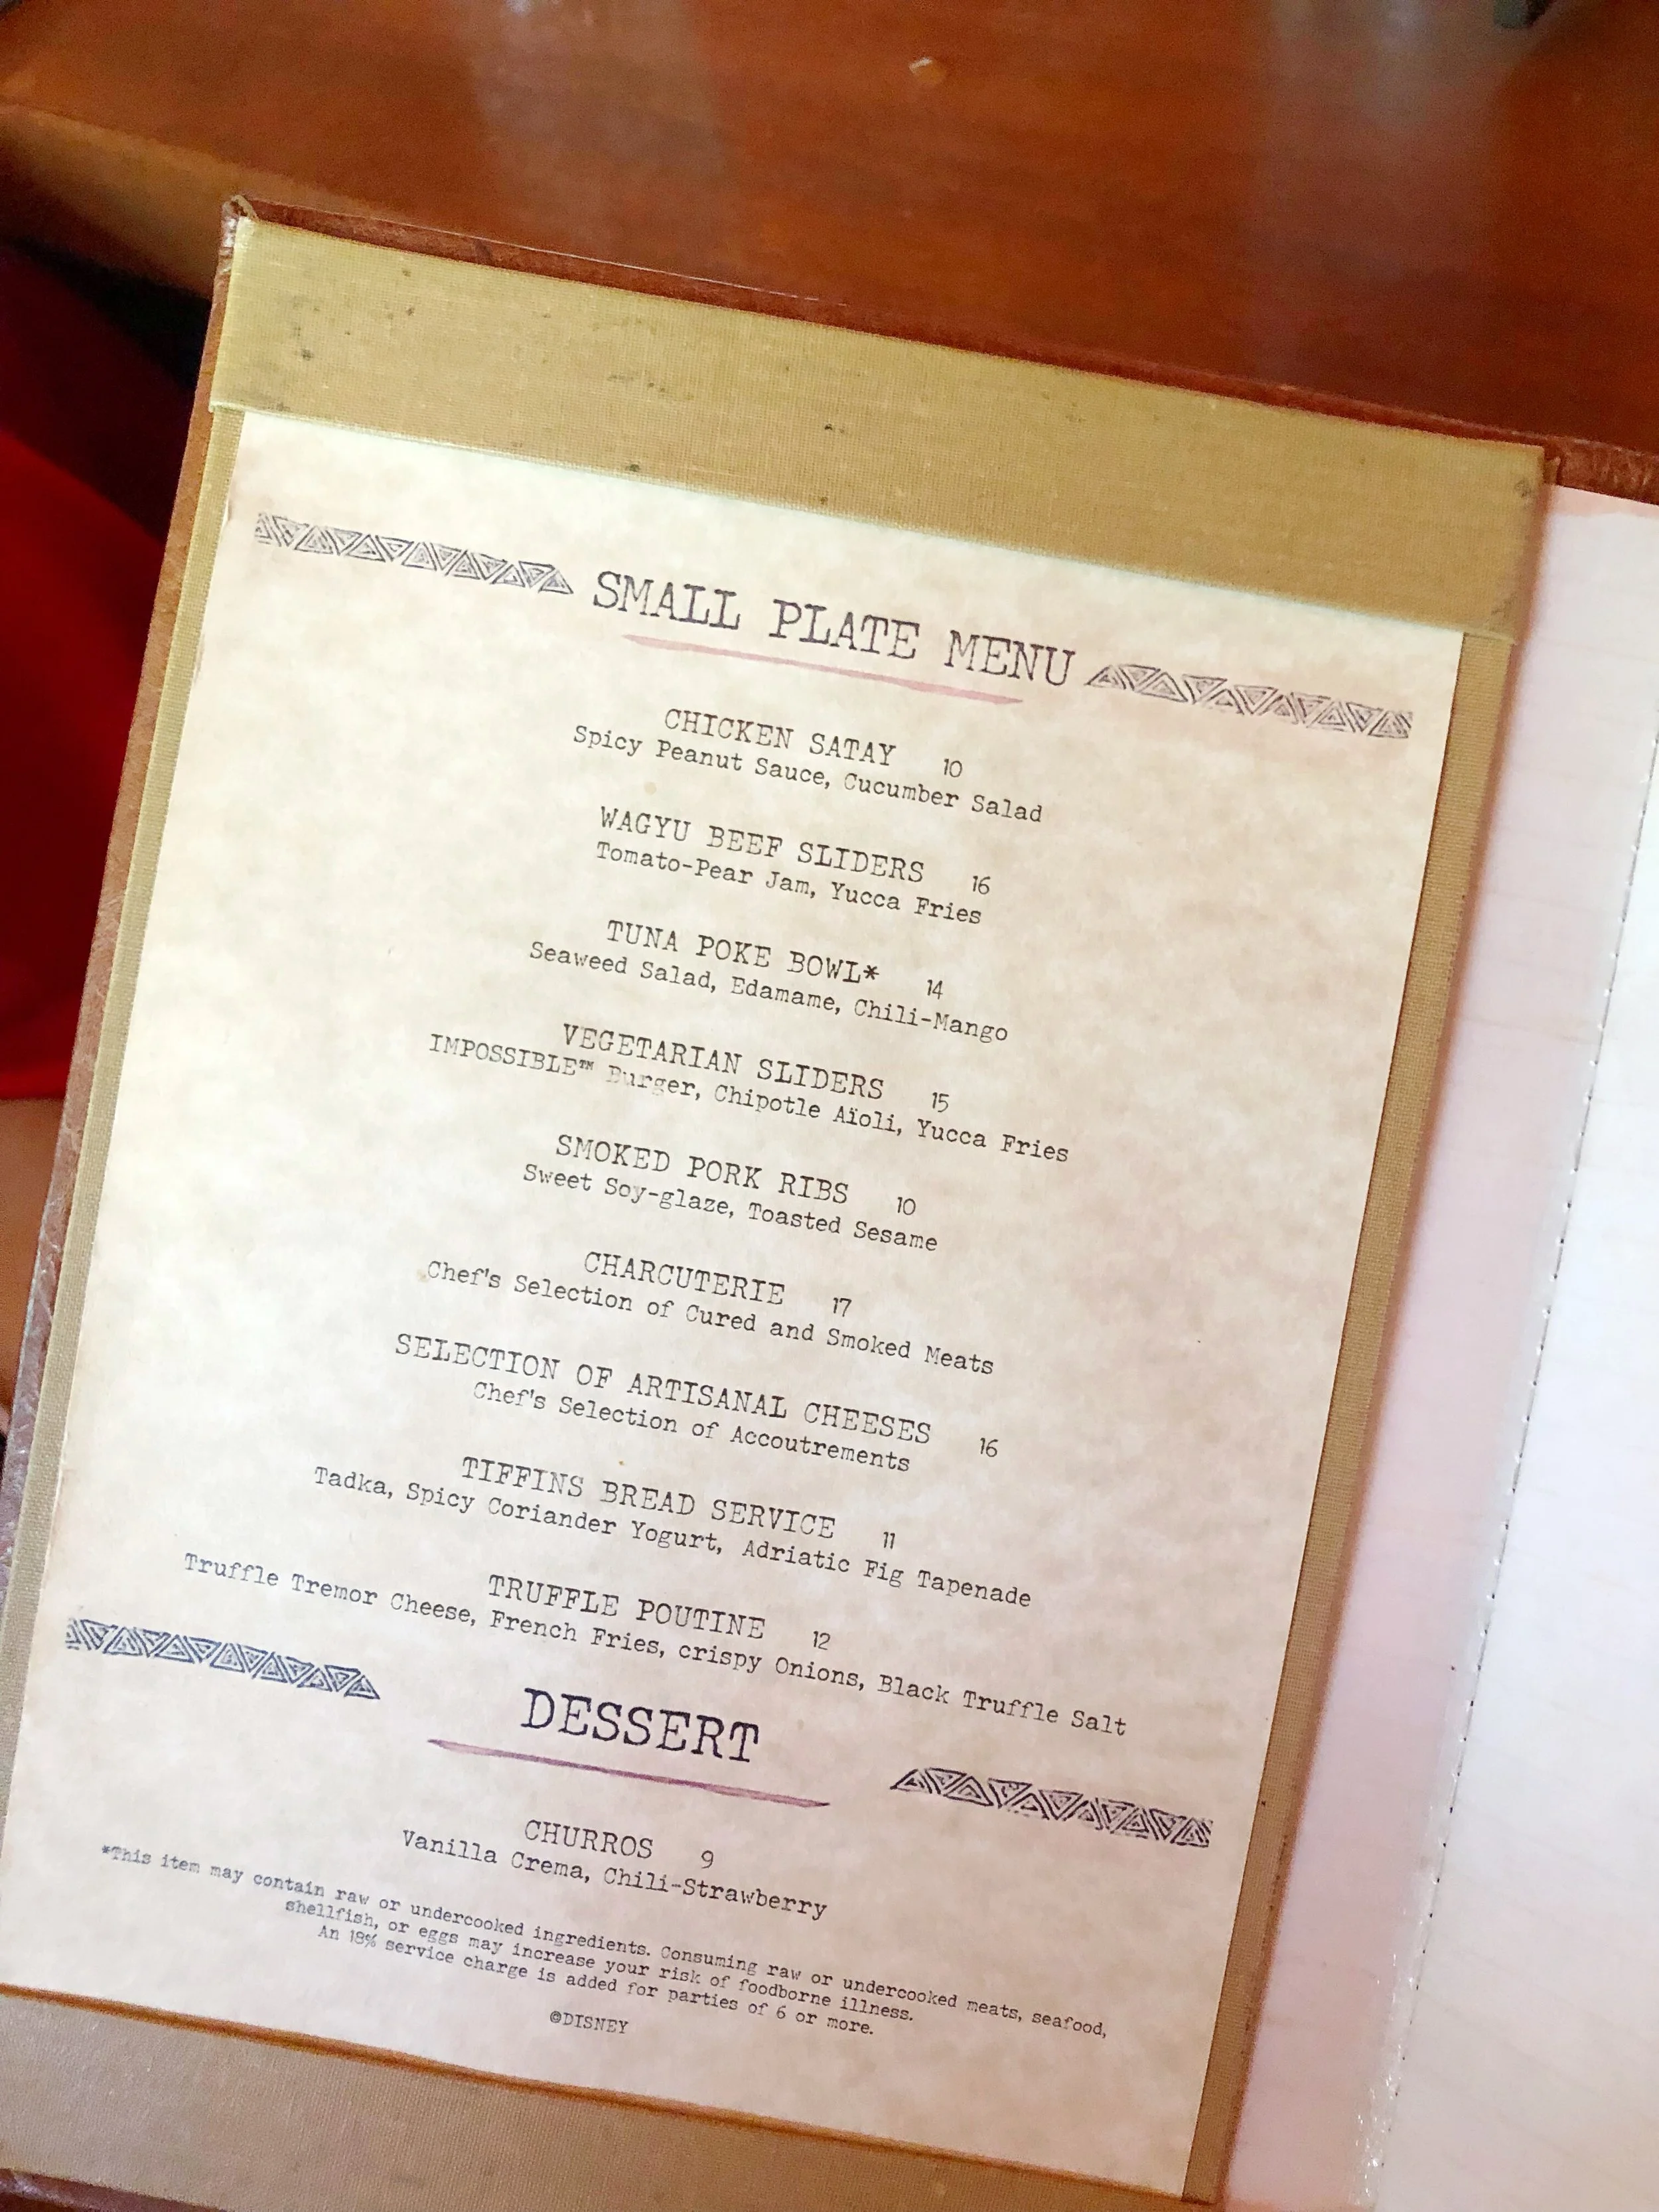 SMALL PLATE MENU
CHICKEN SATAY 10
Spicy Peanut Sauce, Cucumber Salad
WAGYU BEEF SLIDERS 16
Tomato-Pear Jam, Yucca Fries
TUNA POKE BOWL* 14
Seaweed Salad, Edamame, Chili-Mango
VEGETARIAN SLIDERS 15
IMPOSSIBLE™ Burger, Chipotle Aïoli, Yucca Fries
SMOKED PORK RIBS 10
Sweet Soy-glaze, Toasted Sesame
CHARCUTERIE 17
Chef's Selection of Cured and Smoked Meats
SELECTION OF ARTISANAL CHEESES 16
Chef's Selection of Accoutrements
TIFFINS BREAD SERVICE 11
Tadka, Spicy Coriander Yogurt, Adriatic Fig Tapenade
TRUFFLE POUTINE 12
Truffle Tremor Cheese, French Fries, crispy Onions, Black Truffle Salt
DESSERT
CHURROS 9
Vanilla Crema, Chili-Strawberry
*This item may contain raw or undercooked ingredients. Consuming raw or undercooked meats, seafood,
shellfish, or eggs may increase your risk of foodborne illness.
An 18% service charge is added for parties of 6 or more.
©DISNEY